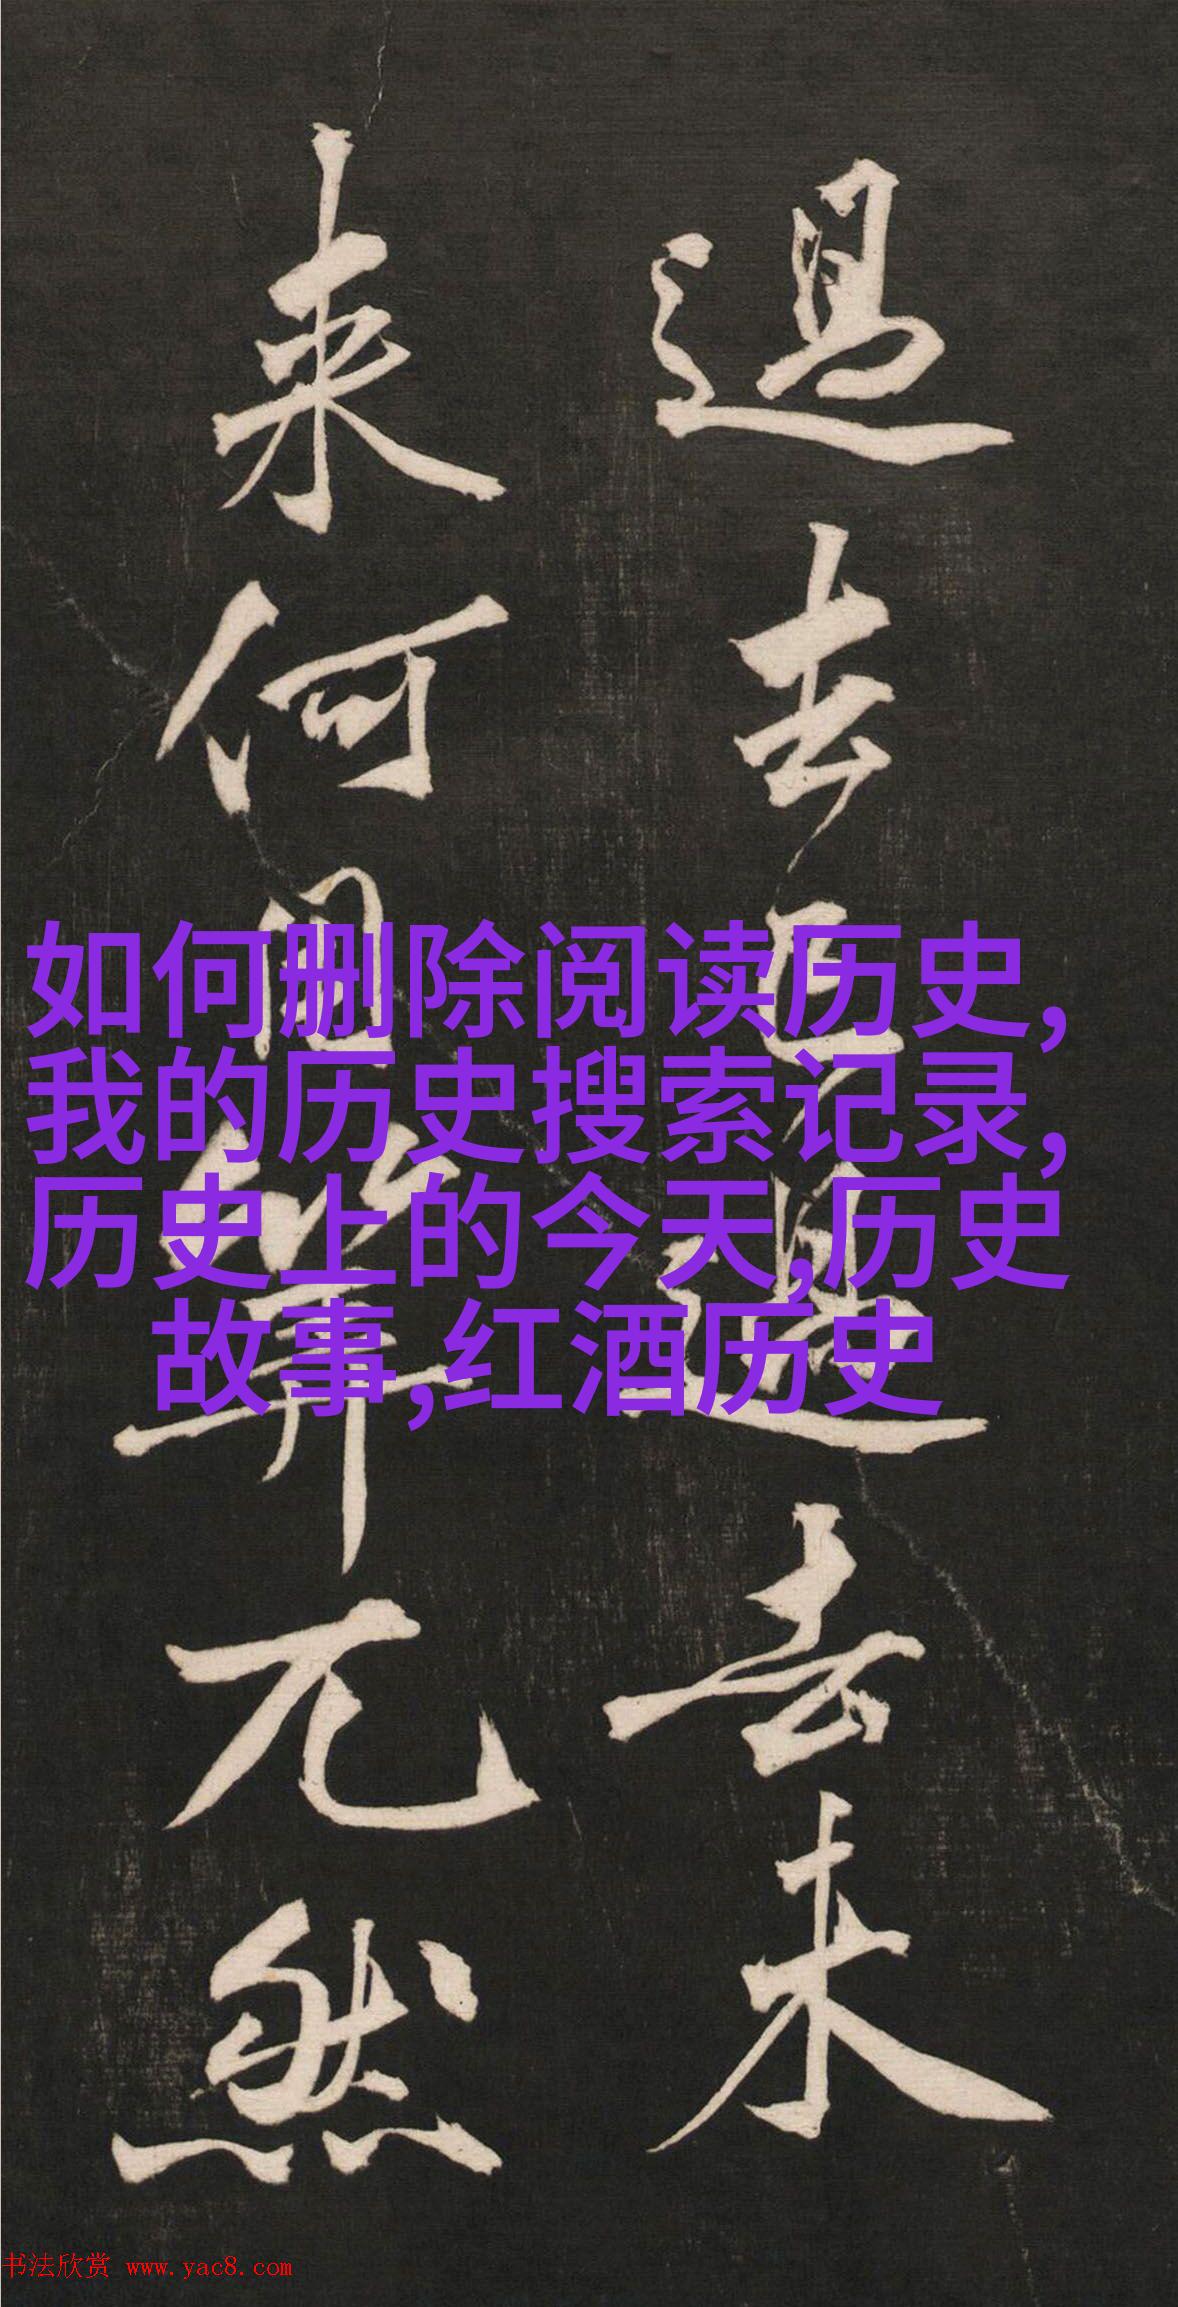 過去已過去未
来何用算兀然
如何删除阅读历史,
我的历史搜索记录,
历史上的今天,历史
故事,红酒历史
书法欣赏 www.yac8.com